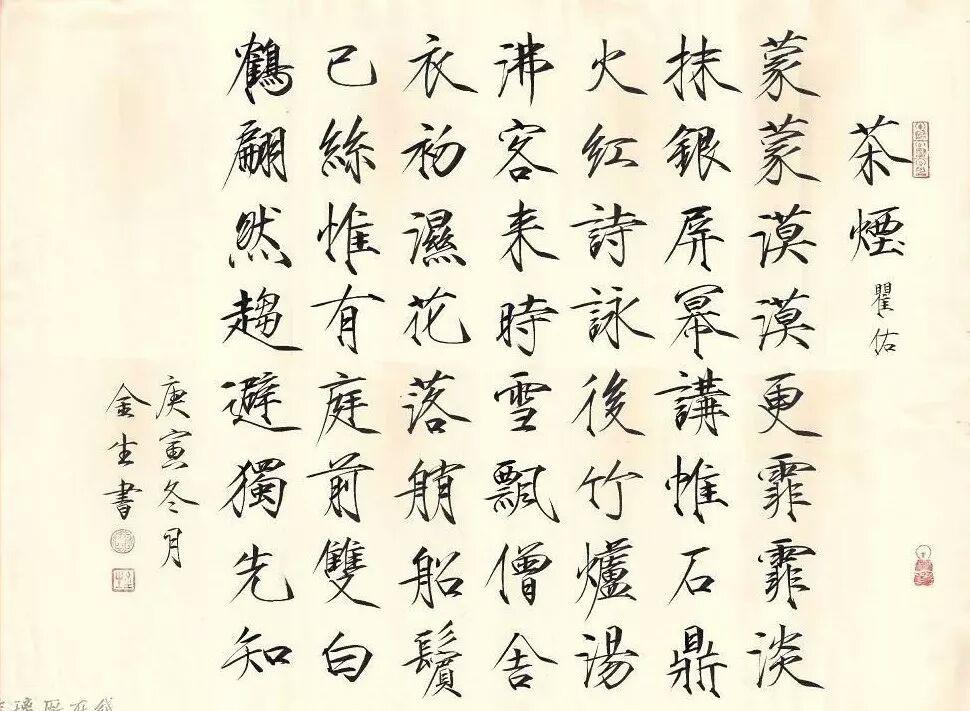 茶煙 瞿佑
蒙蒙漠漠更霏霏淡
抹銀屏冪講帷石鼎
火紅詩詠後竹爐湯
沸客来時雪飄僧舍
衣初濕花落艄船鬢
已絲惟有庭前雙白
鶴翩然趨避獨先知
庚寅冬月
金生書